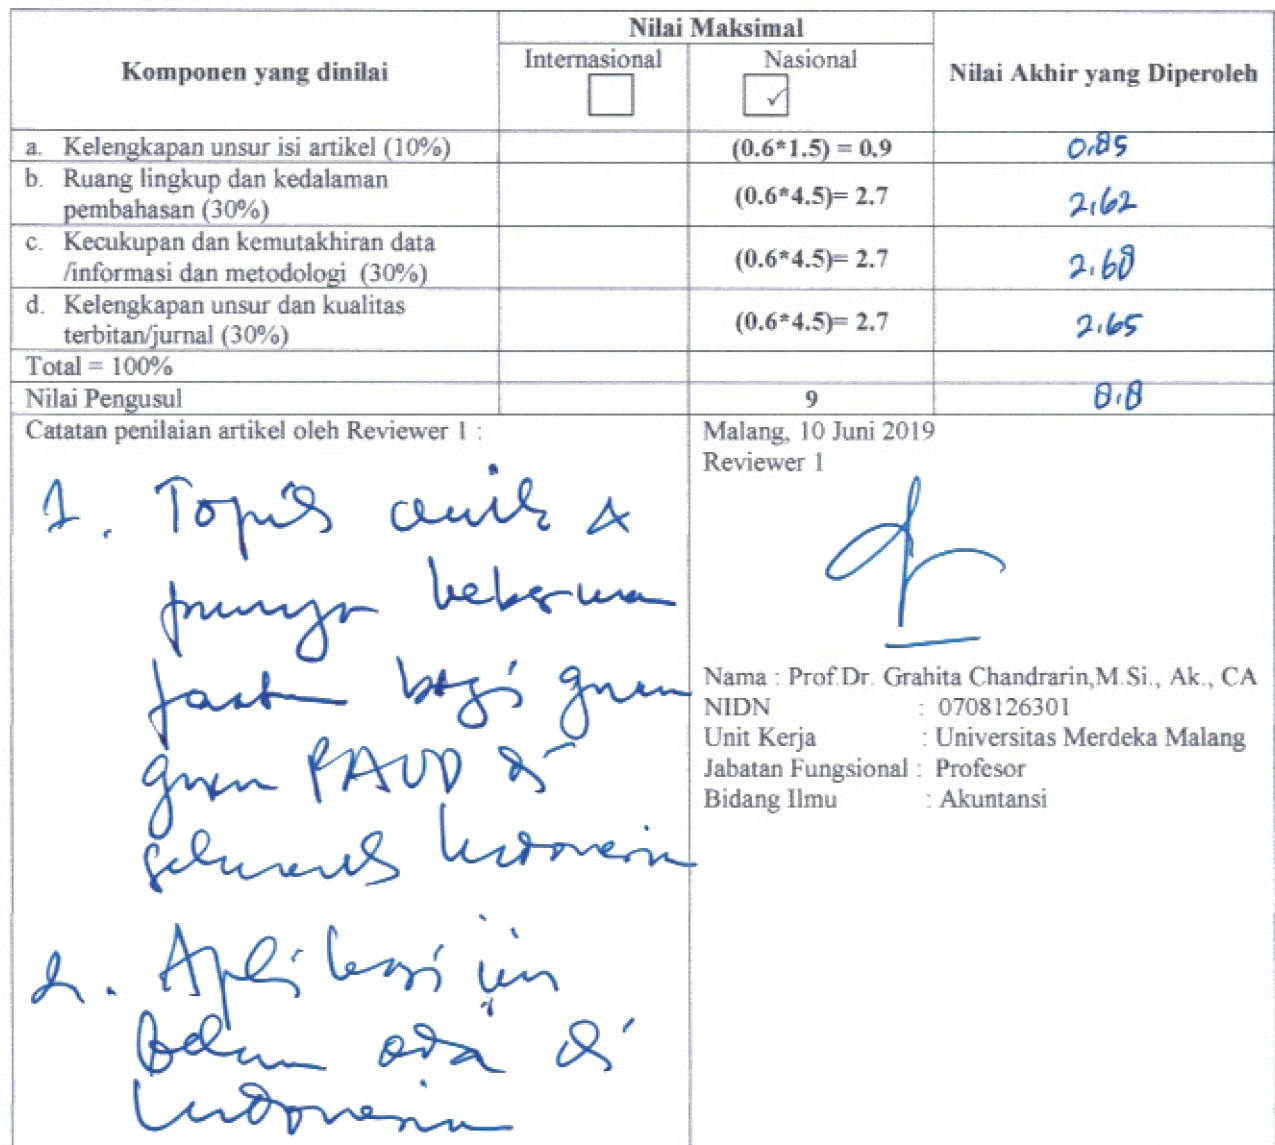 Nilai Maksimal
Komponen yang dinilai
Internasional
Nasional
Nilai Akhir yang Diperoleh
✓
a. Kelengkapan unsur isi artikel (10%) (0.6*1.5) = 0.9 0,85
b. Ruang lingkup dan kedalaman
pembahasan (30%) (0.6*4.5)= 2.7 2,62
c. Kecukupan dan kemutakhiran data
/informasi dan metodologi (30%) (0.6*4.5)= 2.7 2.68
d. Kelengkapan unsur dan kualitas
terbitan/jurnal (30%) (0.6*4.5)= 2.7 2.65
Total = 100%
Nilai Pengusul 9 8.8
Catatan penilaian artikel oleh Reviewer 1 :
1. Topik unik &
punya
bagi guru
guru PAUD di
seluruh Indonesia
2. Aplikasi ini
belum ada di
Indonesia
Malang, 10 Juni 2019
Reviewer 1
Nama : Prof.Dr. Grahita Chandrarin,M.Si., Ak., CA
NIDN : 0708126301
Unit Kerja : Universitas Merdeka Malang
Jabatan Fungsional : Profesor
Bidang Ilmu : Akuntansi